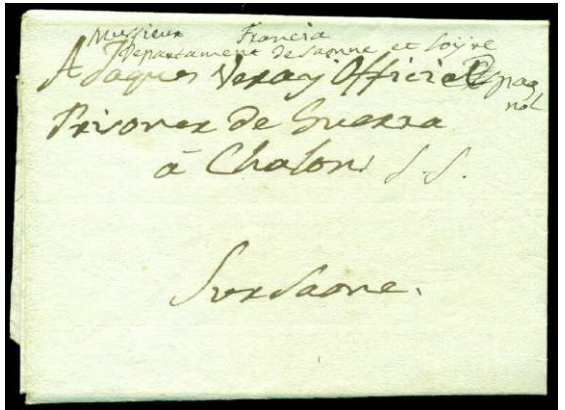 Mussieur Francia
Departament de Saonne et Loyre
A Jaques Veray Officier Espag
nol
Prisoner de Guerra
à Chalon S. S.
Sur Saone.